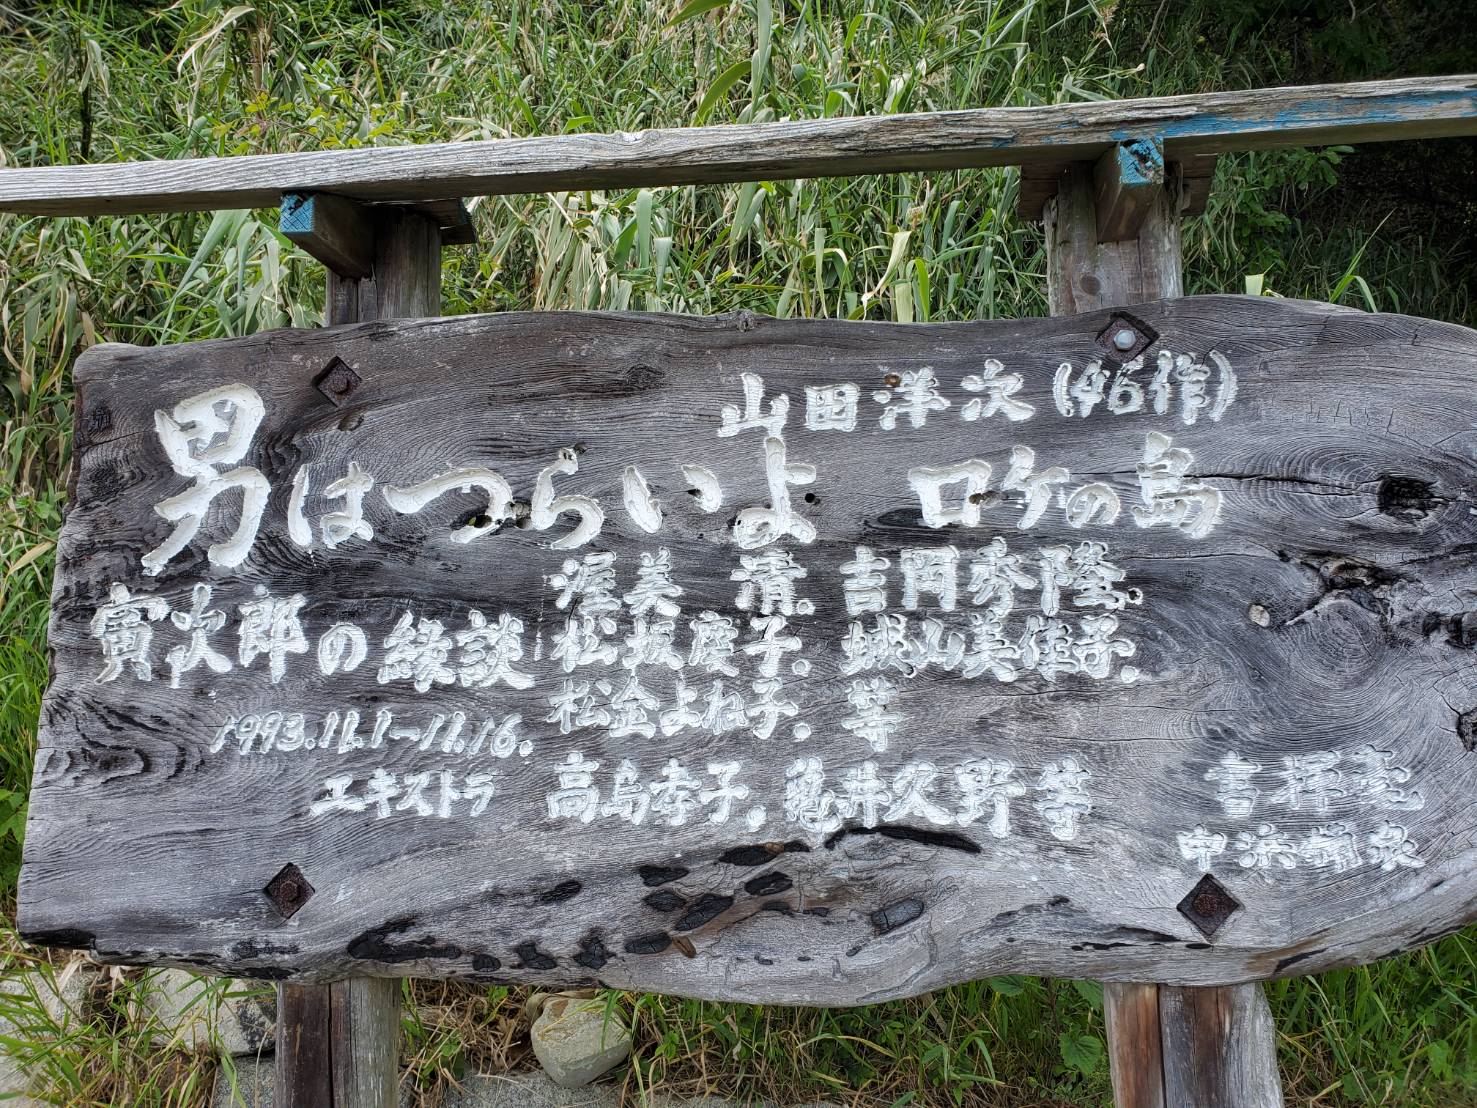 山田洋次(46作)
男はつらいよ ロケの島
寅次郎の縁談
渥美 清. 吉岡秀隆.
松坂慶子. 城山美佳子.
松金よね子. 等
1993.11.1~11.16.
エキストラ 高島孝子. 亀井久野等
書揮毫
中浜